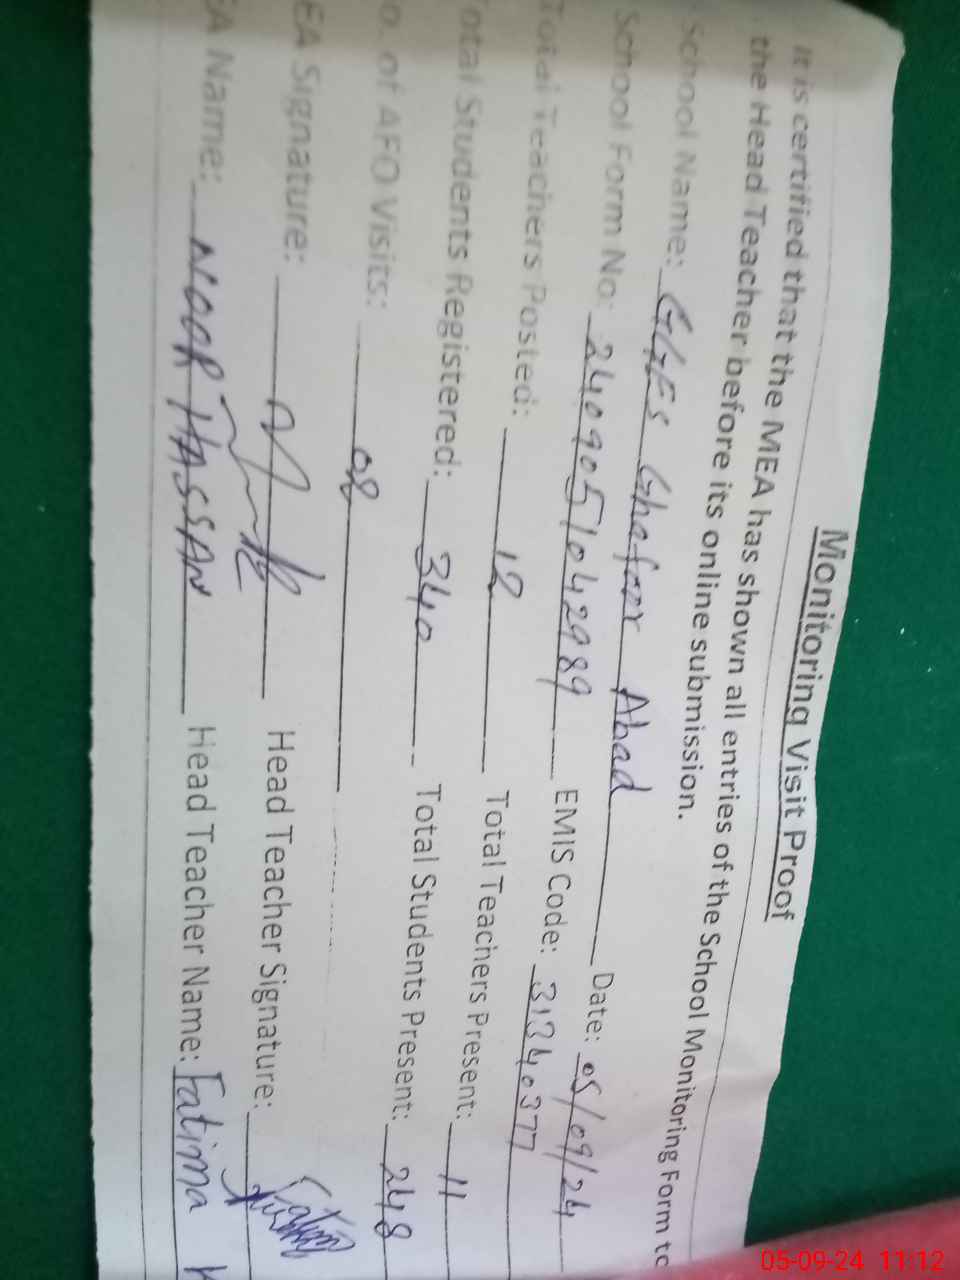 Monitoring Visit Proof
It is certified that the MEA has shown all entries of the School Monitoring Form to
the Head Teacher before its online submission.
School Name: GGES Ghafoor Abad Date: 05/09/24
School Form No: 2409051042989 EMIS Code: 31340377
Total Teachers Posted: 12 Total Teachers Present: 11
otal Students Registered: 340 Total Students Present: 248
o. of AFO Visits: 08
EA Signature: Head Teacher Signature:
EA Name: NOOR HASSAN Head Teacher Name: Fatima
05-09-24 11:12